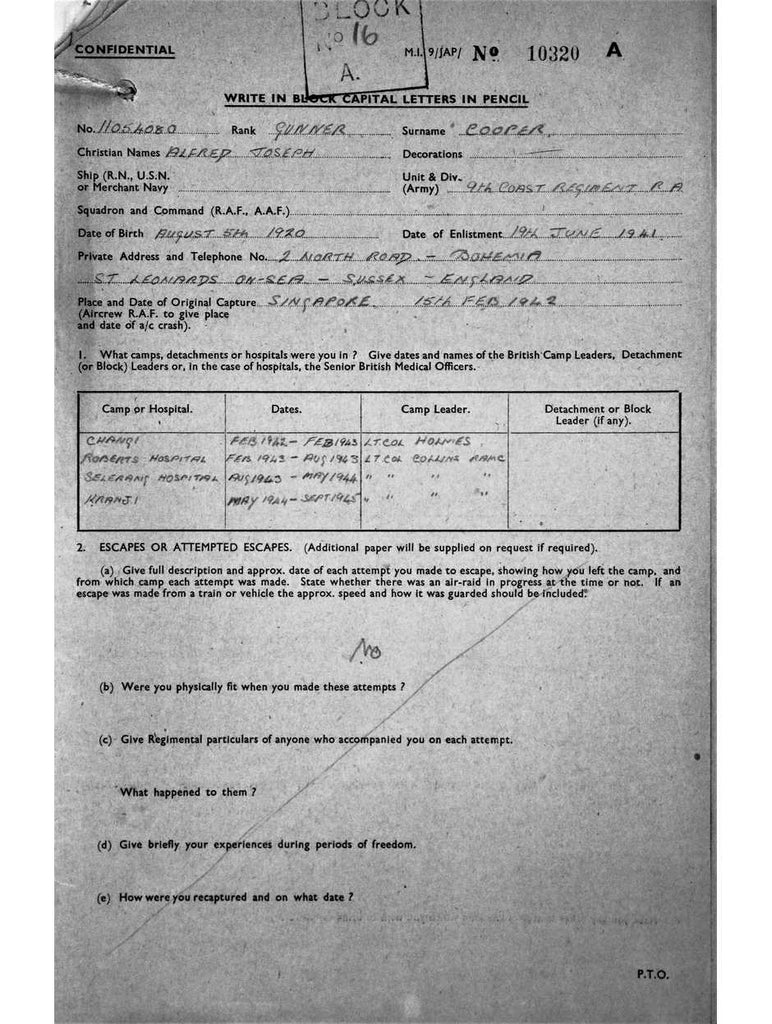 BLOCK
No 16
A.
CONFIDENTIAL
M.I. 9/JAP/ No 10320 A
WRITE IN BLOCK CAPITAL LETTERS IN PENCIL
No. 11054080 Rank GUNNER Surname COOPER
Christian Names ALFRED JOSEPH Decorations —
Ship (R.N., U.S.N. or Merchant Navy
Unit & Div. (Army) 9th COAST REGIMENT R A
Squadron and Command (R.A.F., A.A.F.)
Date of Birth AUGUST 5th 1920 Date of Enlistment 19th JUNE 1941
Private Address and Telephone No. 2 NORTH ROAD - BOHEMIA
ST LEONARDS ON-SEA - SUSSEX - ENGLAND
Place and Date of Original Capture SINGAPORE 15TH FEB 1942
(Aircrew R.A.F. to give place
and date of a/c crash).
1. What camps, detachments or hospitals were you in ? Give dates and names of the British Camp Leaders, Detachment
(or Block) Leaders or, in the case of hospitals, the Senior British Medical Officers.
Camp or Hospital. Dates. Camp Leader. Detachment or Block
Leader (if any).
CHANGI FEB 1942 - FEB 1943 LT COL HOLMES
ROBERTS HOSPITAL FEB 1943 - AUG 1943 LT COL COLLINS RAMC
SELERANG HOSPITAL AUG 1943 - MAY 1944 " " " "
KRANJI MAY 1944 - SEPT 1945 " " " "
2. ESCAPES OR ATTEMPTED ESCAPES. (Additional paper will be supplied on request if required).
(a) Give full description and approx. date of each attempt you made to escape, showing how you left the camp, and
from which camp each attempt was made. State whether there was an air-raid in progress at the time or not. If an
escape was made from a train or vehicle the approx. speed and how it was guarded should be included.
No
(b) Were you physically fit when you made these attempts ?
(c) Give Regimental particulars of anyone who accompanied you on each attempt.
What happened to them ?
(d) Give briefly your experiences during periods of freedom.
(e) How were you recaptured and on what date ?
P.T.O.